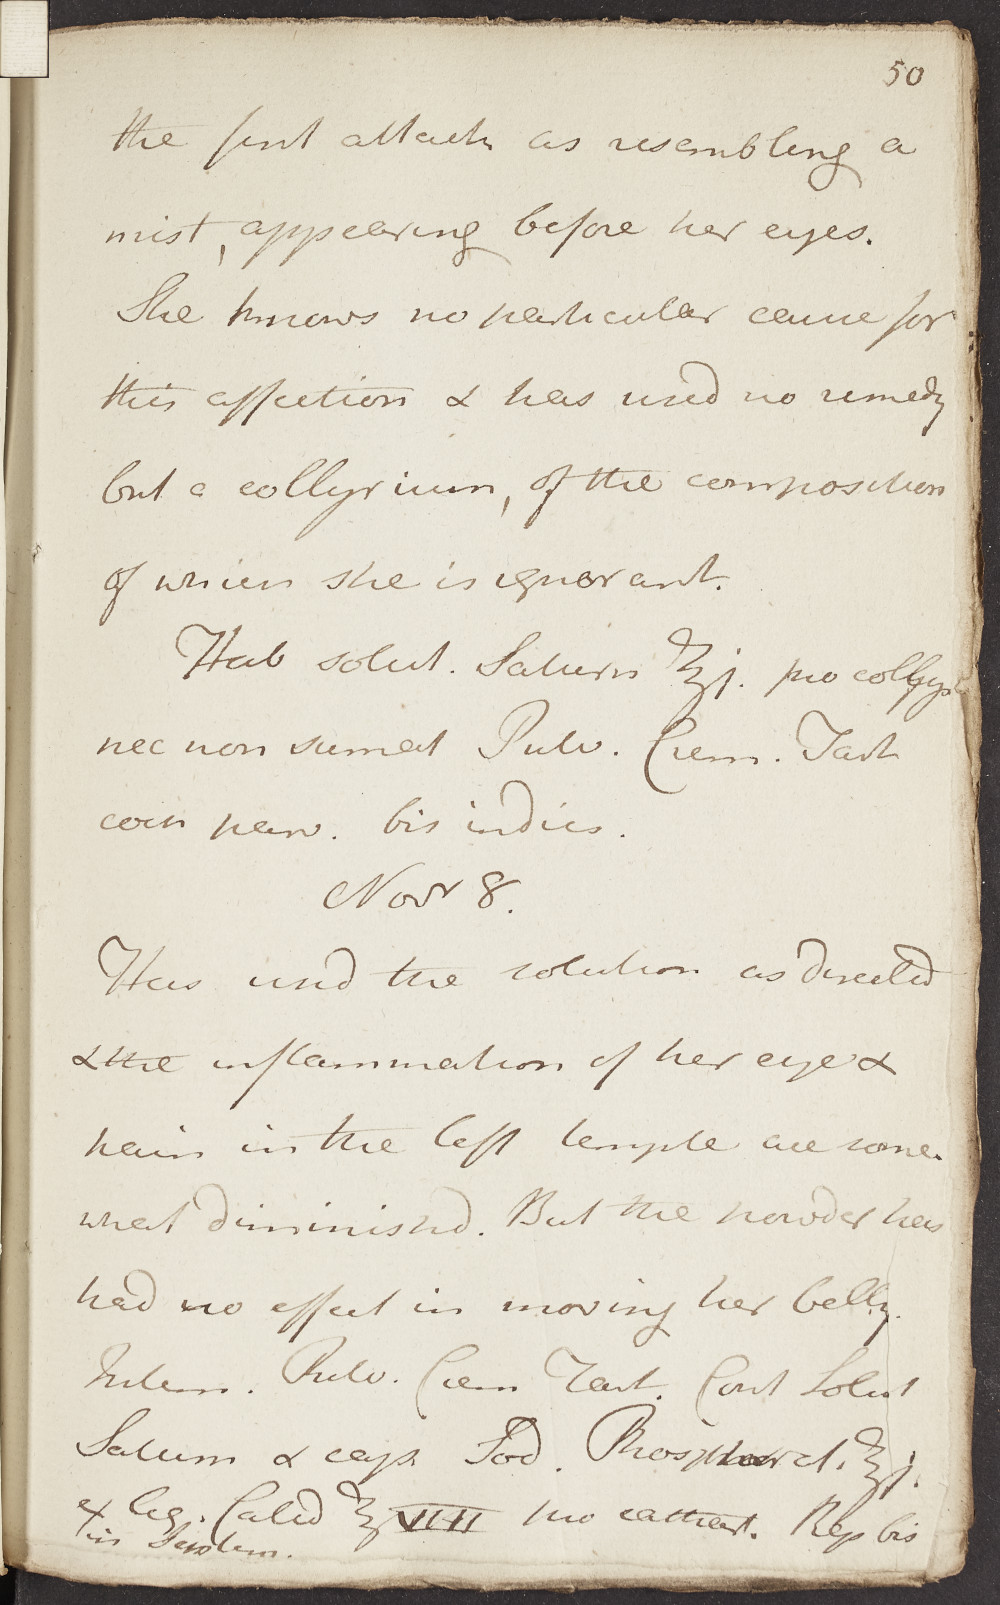 50
the first attack as resembling a
mist, appearing before her eyes.
She knows no particular cause for
this affection & has used no remedy
but a collyrium, of the composition
of which she is ignorant.
Hab solut. Saturn ℥j. pro collyr
nec non sumat Pulv. Crem. Tart
coch parv. bis indies.
Novr 8.
Has used the solution as directed
& the inflammation of her eye &
pain in the left temple are some
what diminishd. But the powder has
had no effect in moving her belly.
Interm. Pulv. Crem Tart. Cont Solut
Saturn & cap Sod. Phosphorat. ℥j.
ex Aq. Calid ℥ VIII pro cathart. Rep bis
in Septem.